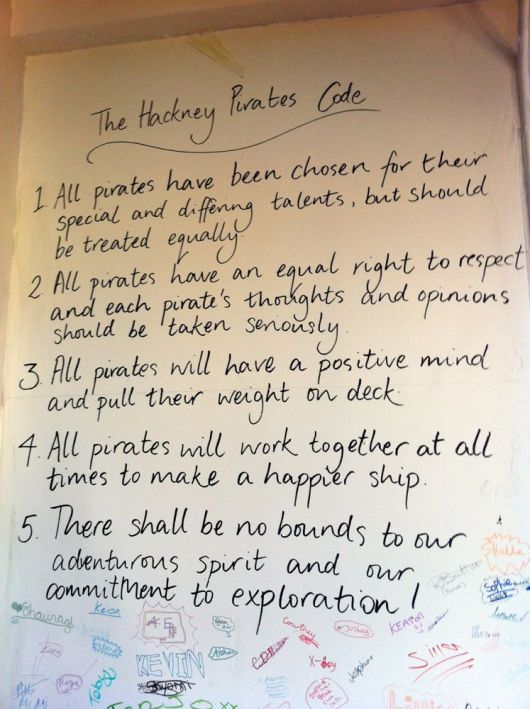 The Hackney Pirates Code
1. All pirates have been chosen for their
special and differing talents, but should
be treated equally.
2. All pirates have an equal right to respect
and each pirate's thoughts and opinions
should be taken seriously.
3. All pirates will have a positive mind
and pull their weight on deck
4. All pirates will work together at all
times to make a happier ship.
5. There shall be no bounds to our
adventurous spirit and our
commitment to exploration!
Shalla
Sophie
Keion
Courtney
Joshua
KEATON
KEVIN
X-boy
Josephine
Simon
Toby